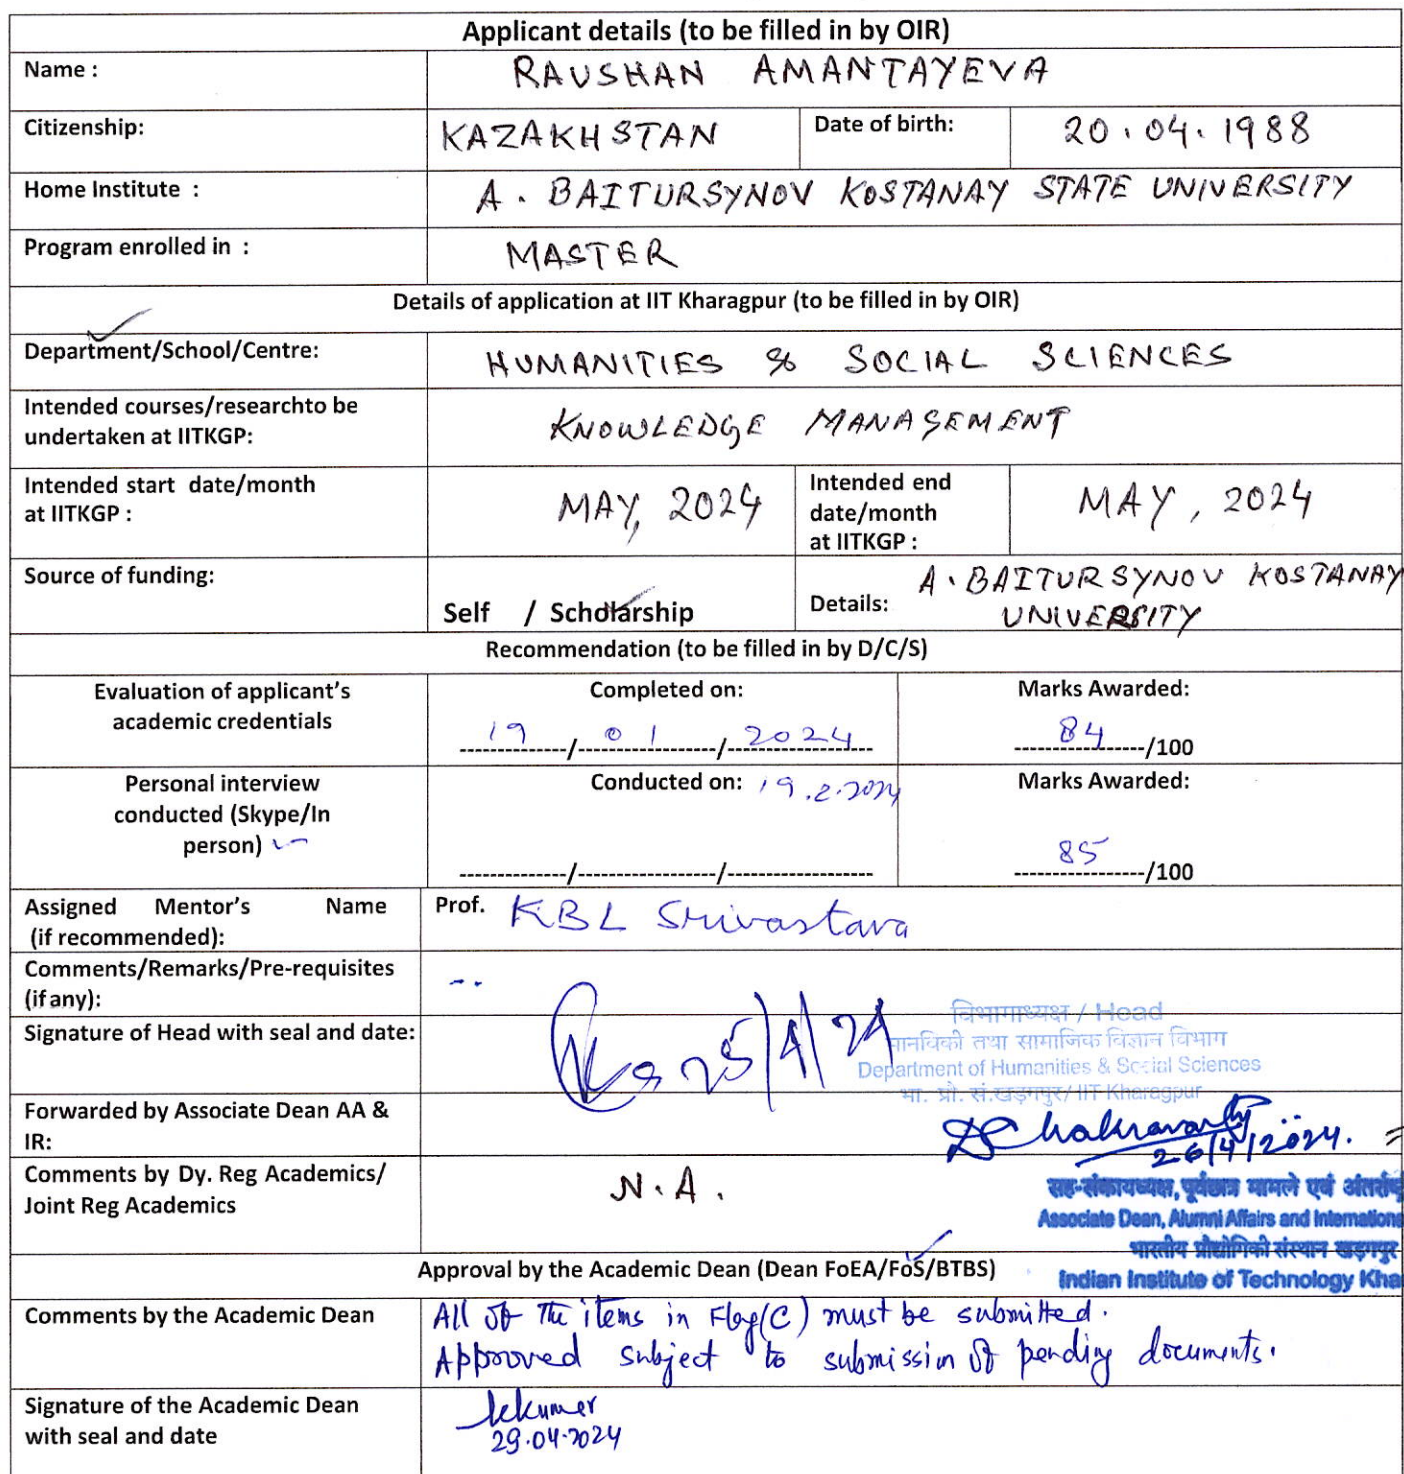 Applicant details (to be filled in by OIR)
Name : RAUSHAN AMANTAYEVA
Citizenship: KAZAKHSTAN Date of birth: 20.04.1988
Home Institute : A. BAITURSYNOV KOSTANAY STATE UNIVERSITY
Program enrolled in : MASTER
Details of application at IIT Kharagpur (to be filled in by OIR)
Department/School/Centre: HUMANITIES & SOCIAL SCIENCES
Intended courses/researchto be
undertaken at IITKGP: KNOWLEDGE MANAGEMENT
Intended start date/month
at IITKGP : MAY, 2024
Intended end
date/month
at IITKGP : MAY, 2024
Source of funding: Self / Scholarship
Details: A. BAITURSYNOV KOSTANAY
UNIVERSITY
Recommendation (to be filled in by D/C/S)
Evaluation of applicant's
academic credentials
Completed on:
19/01/2024
Marks Awarded:
84/100
Personal interview
conducted (Skype/In
person)
Conducted on: 19.2.2024
-------------/-----------------/------------------
Marks Awarded:
85/100
Assigned Mentor's Name
(if recommended):
Prof. KBL Srivastava
Comments/Remarks/Pre-requisites
(if any): --
Signature of Head with seal and date:
25/4/24
विभागाध्यक्ष / Head
मानविकी तथा सामाजिक विज्ञान विभाग
Department of Humanities & Social Sciences
भा. प्रौ. सं.खड़गपुर/ IIT Kharagpur
Forwarded by Associate Dean AA &
IR:
DChakravarty
26/4/2024.
Comments by Dy. Reg Academics/
Joint Reg Academics
N.A.
सह-संकायध्यक्ष, पूर्वछात्र मामले एवं अंतर्राष्
Associate Dean, Alumni Affairs and Internationa
भारतीय प्रौद्योगिकी संस्थान खड़गपुर
Indian Institute of Technology Kha
Approval by the Academic Dean (Dean FoEA/FoS/BTBS)
Comments by the Academic Dean
All of the items in Flag(C) must be submitted.
Approved subject to submission of pending documents.
Signature of the Academic Dean
with seal and date
kkumar
29.04.2024